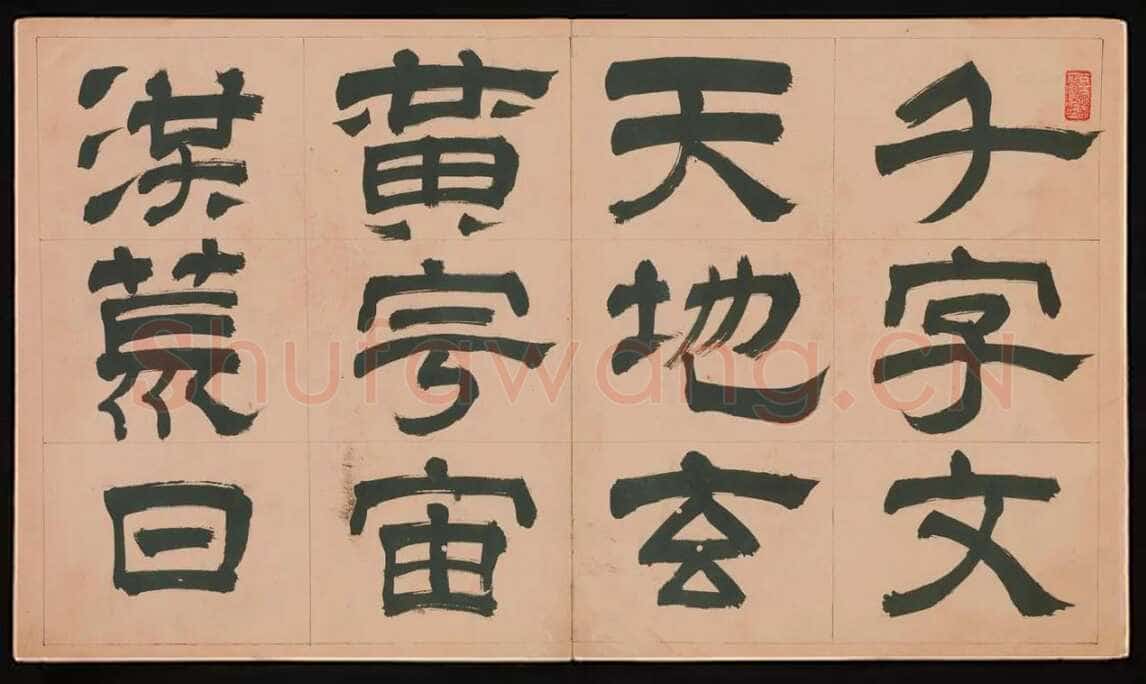 千字文
天地玄
黃宇宙
洪荒日
Shufawang.CN